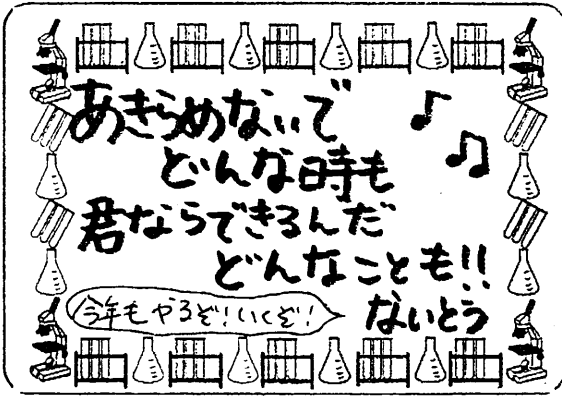 あきらめないで
どんな時も
君ならできるんだ
どんなことも!!
今年もやるぞ!いくぞ!
ないとう